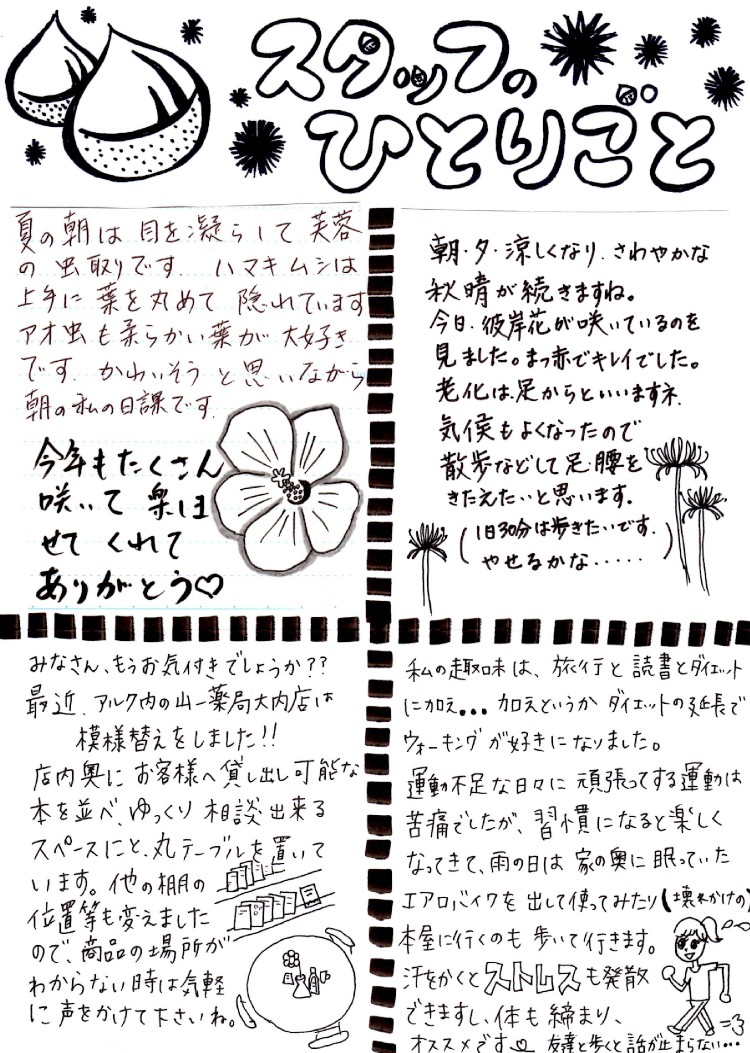 スタッフの
ひとりごと
夏の朝は 目を凝らして 芙蓉
の 虫取りです ハマキムシは
上手に 葉を丸めて 隠れています
アオ虫も柔らかい葉が 大好き
です. かわいそう と思いながら
朝の私の日課です.
今年もたくさん
咲いて 楽しま
せて くれて
ありがとう♡
朝・夕・涼しくなり、さわやかな
秋晴が続きますね。
今日、彼岸花が咲いているのを
見ました。まっ赤でキレイでした。
老化は、足からといいますネ.
気候もよくなったので
散歩などして足、腰を
きたえたいと思います。
(1日30分は歩きたいです.
やせるかな・・・・・)
みなさん、もうお気付きでしょうか??
最近、アルク内の山一薬局大内店は
模様替えをしました!!
店内奥に お客様へ貸し出し可能な
本を並べ、ゆっくり 相談出来る
スペースにと、丸テーブルを置いて
います。他の棚の
位置等も変えました
ので、商品の場所が
わからない時は気軽
に声をかけて下さいね。
私の趣味は、旅行と読書とダイエット
に加え... 加えというか ダイエットの延長で
ウォーキングが好きになりました。
運動不足な日々に 頑張ってする運動は
苦痛でしたが、習慣になると楽しく
なってきて、雨の日は 家の奥に眠っていた
エアロバイクを出して使ってみたり(壊れかけの)
本屋に行くのも 歩いて行きます。
汗をかくとストレスも発散
できますし、体も締まり、
オススメです♡ 友達と歩くと話が止まらない...